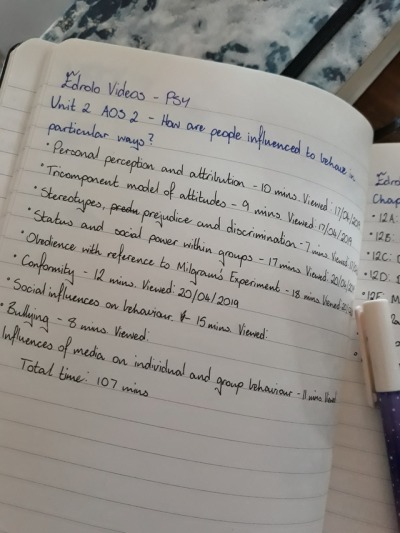 Edrolo Videos - PSY
Unit 2 AOS 2 - How are people influenced to behave in
particular ways?
• Personal perception and attribution - 10 mins. Viewed: 17/04/2019
• Tricomponent model of attitudes - 9 mins. Viewed: 17/04/2019
• Stereotypes, prejudice and discrimination - 7 mins. Viewed:
• Status and social power within groups - 17 mins. Viewed: 20/04/2019
• Obedience with reference to Milgram's Experiment - 18 mins. Viewed:
• Conformity - 12 mins. Viewed: 20/04/2019
• Social influences on behaviour. 15 mins. Viewed:
• Bullying - 8 mins. Viewed:
Influences of media on individual and group behaviour - 11 mins. Viewed
Total time: 107 mins
Edro
Chap
• 12A:
• 12B:
• 12C:
• 12D:
• 12E